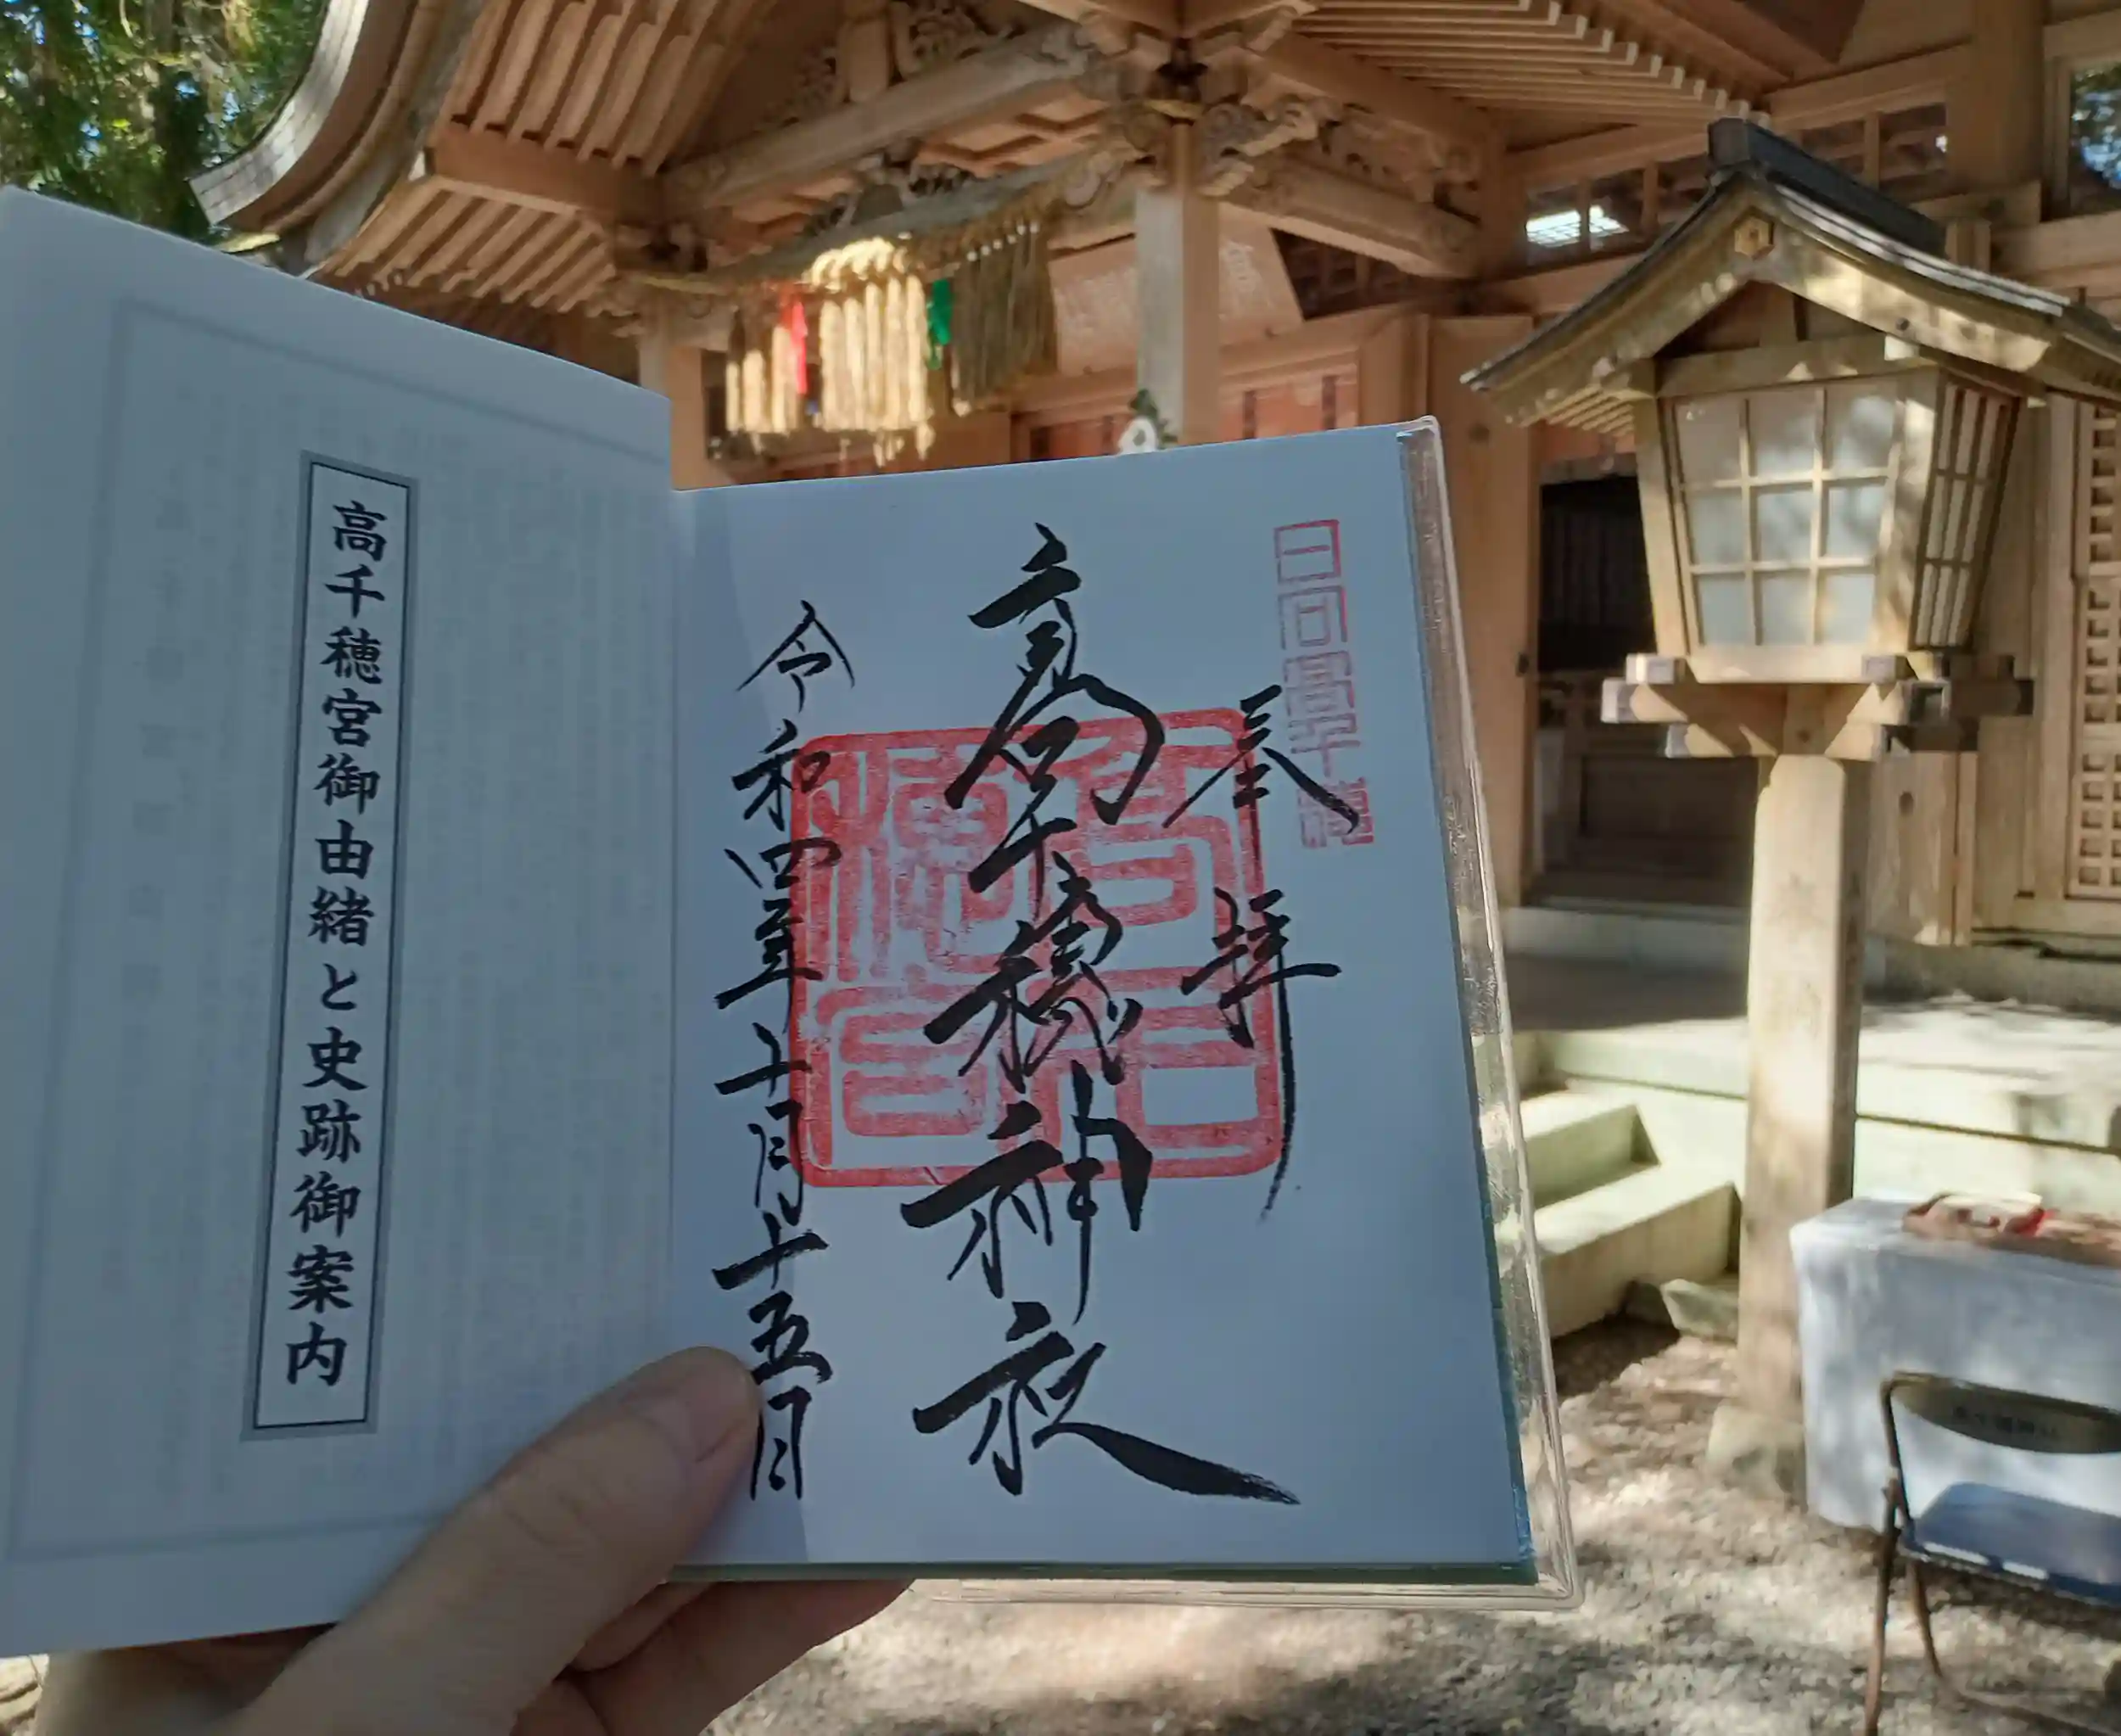 日向高千穂
奉拝
高千穂神社
令和四年十月十五日
高千穂宮御由緒と史跡御案内